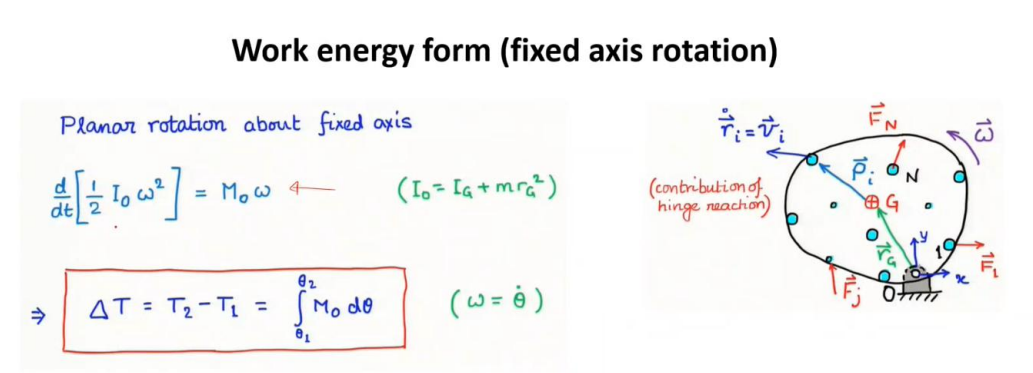 Work energy form (fixed axis rotation)
Planar rotation about fixed axis
d/dt [1/2 I₀ ω²] = M₀ω ← (I₀ = I_G + mr_G²)
⇒ ΔT = T₂ - T₁ = ∫_θ₁^θ₂ M₀ dθ (ω = θ̇)
(contribution of
hinge reaction)
ṙ⃗ᵢ = v⃗ᵢ
F⃗_N
ω⃗
ρ⃗ᵢ
N
G
r⃗_G
y
1
x
F⃗₁
F⃗ⱼ
O